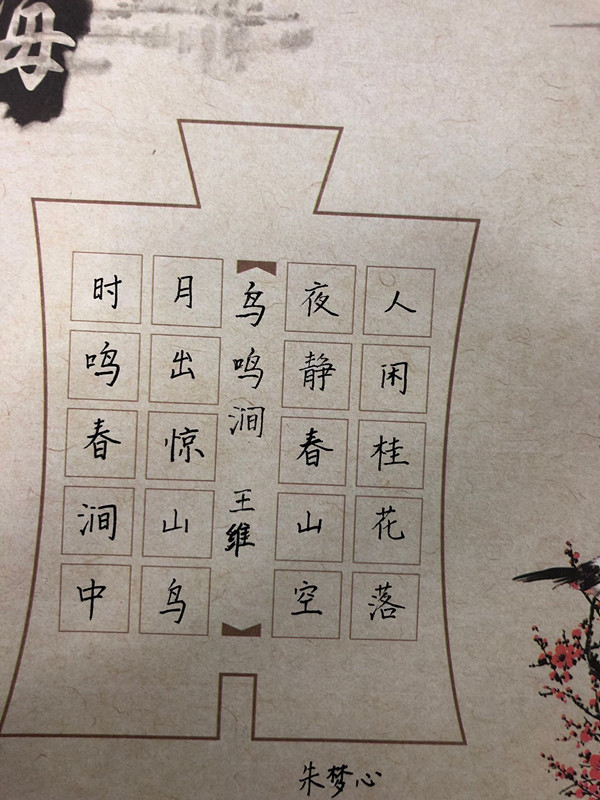 人闲桂花落
夜静春山空
鸟鸣涧 王维
月出惊山鸟
时鸣春涧中
朱梦心